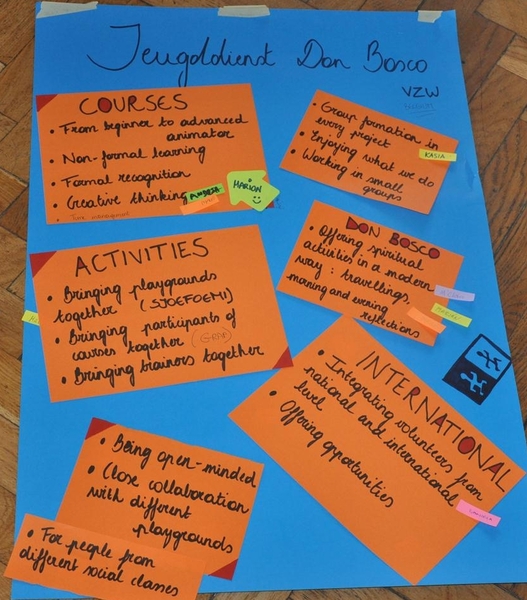 Jeugddienst Don Bosco
VZW
COURSES
• From beginner to advanced
animator
• Non-formal learning
• Formal recognition
• Creative thinking
Time management
MARION
• Group formation in
every project
• Enjoying what we do
• Working in small
groups
KASIA
DON BOSCO
• Offering spiritual
activities in a modern
way: travellings,
morning and evening
reflections
ACTIVITIES
• Bringing playgrounds
together (SJOEFOEMI)
• Bringing participants of
courses together
• Bringing trainers together
INTERNATIONAL
• Integrating volunteers from
national and international
level
• Offering opportunities
• Being open-minded
• Close collaboration
with different
playgrounds
• For people from
different social classes